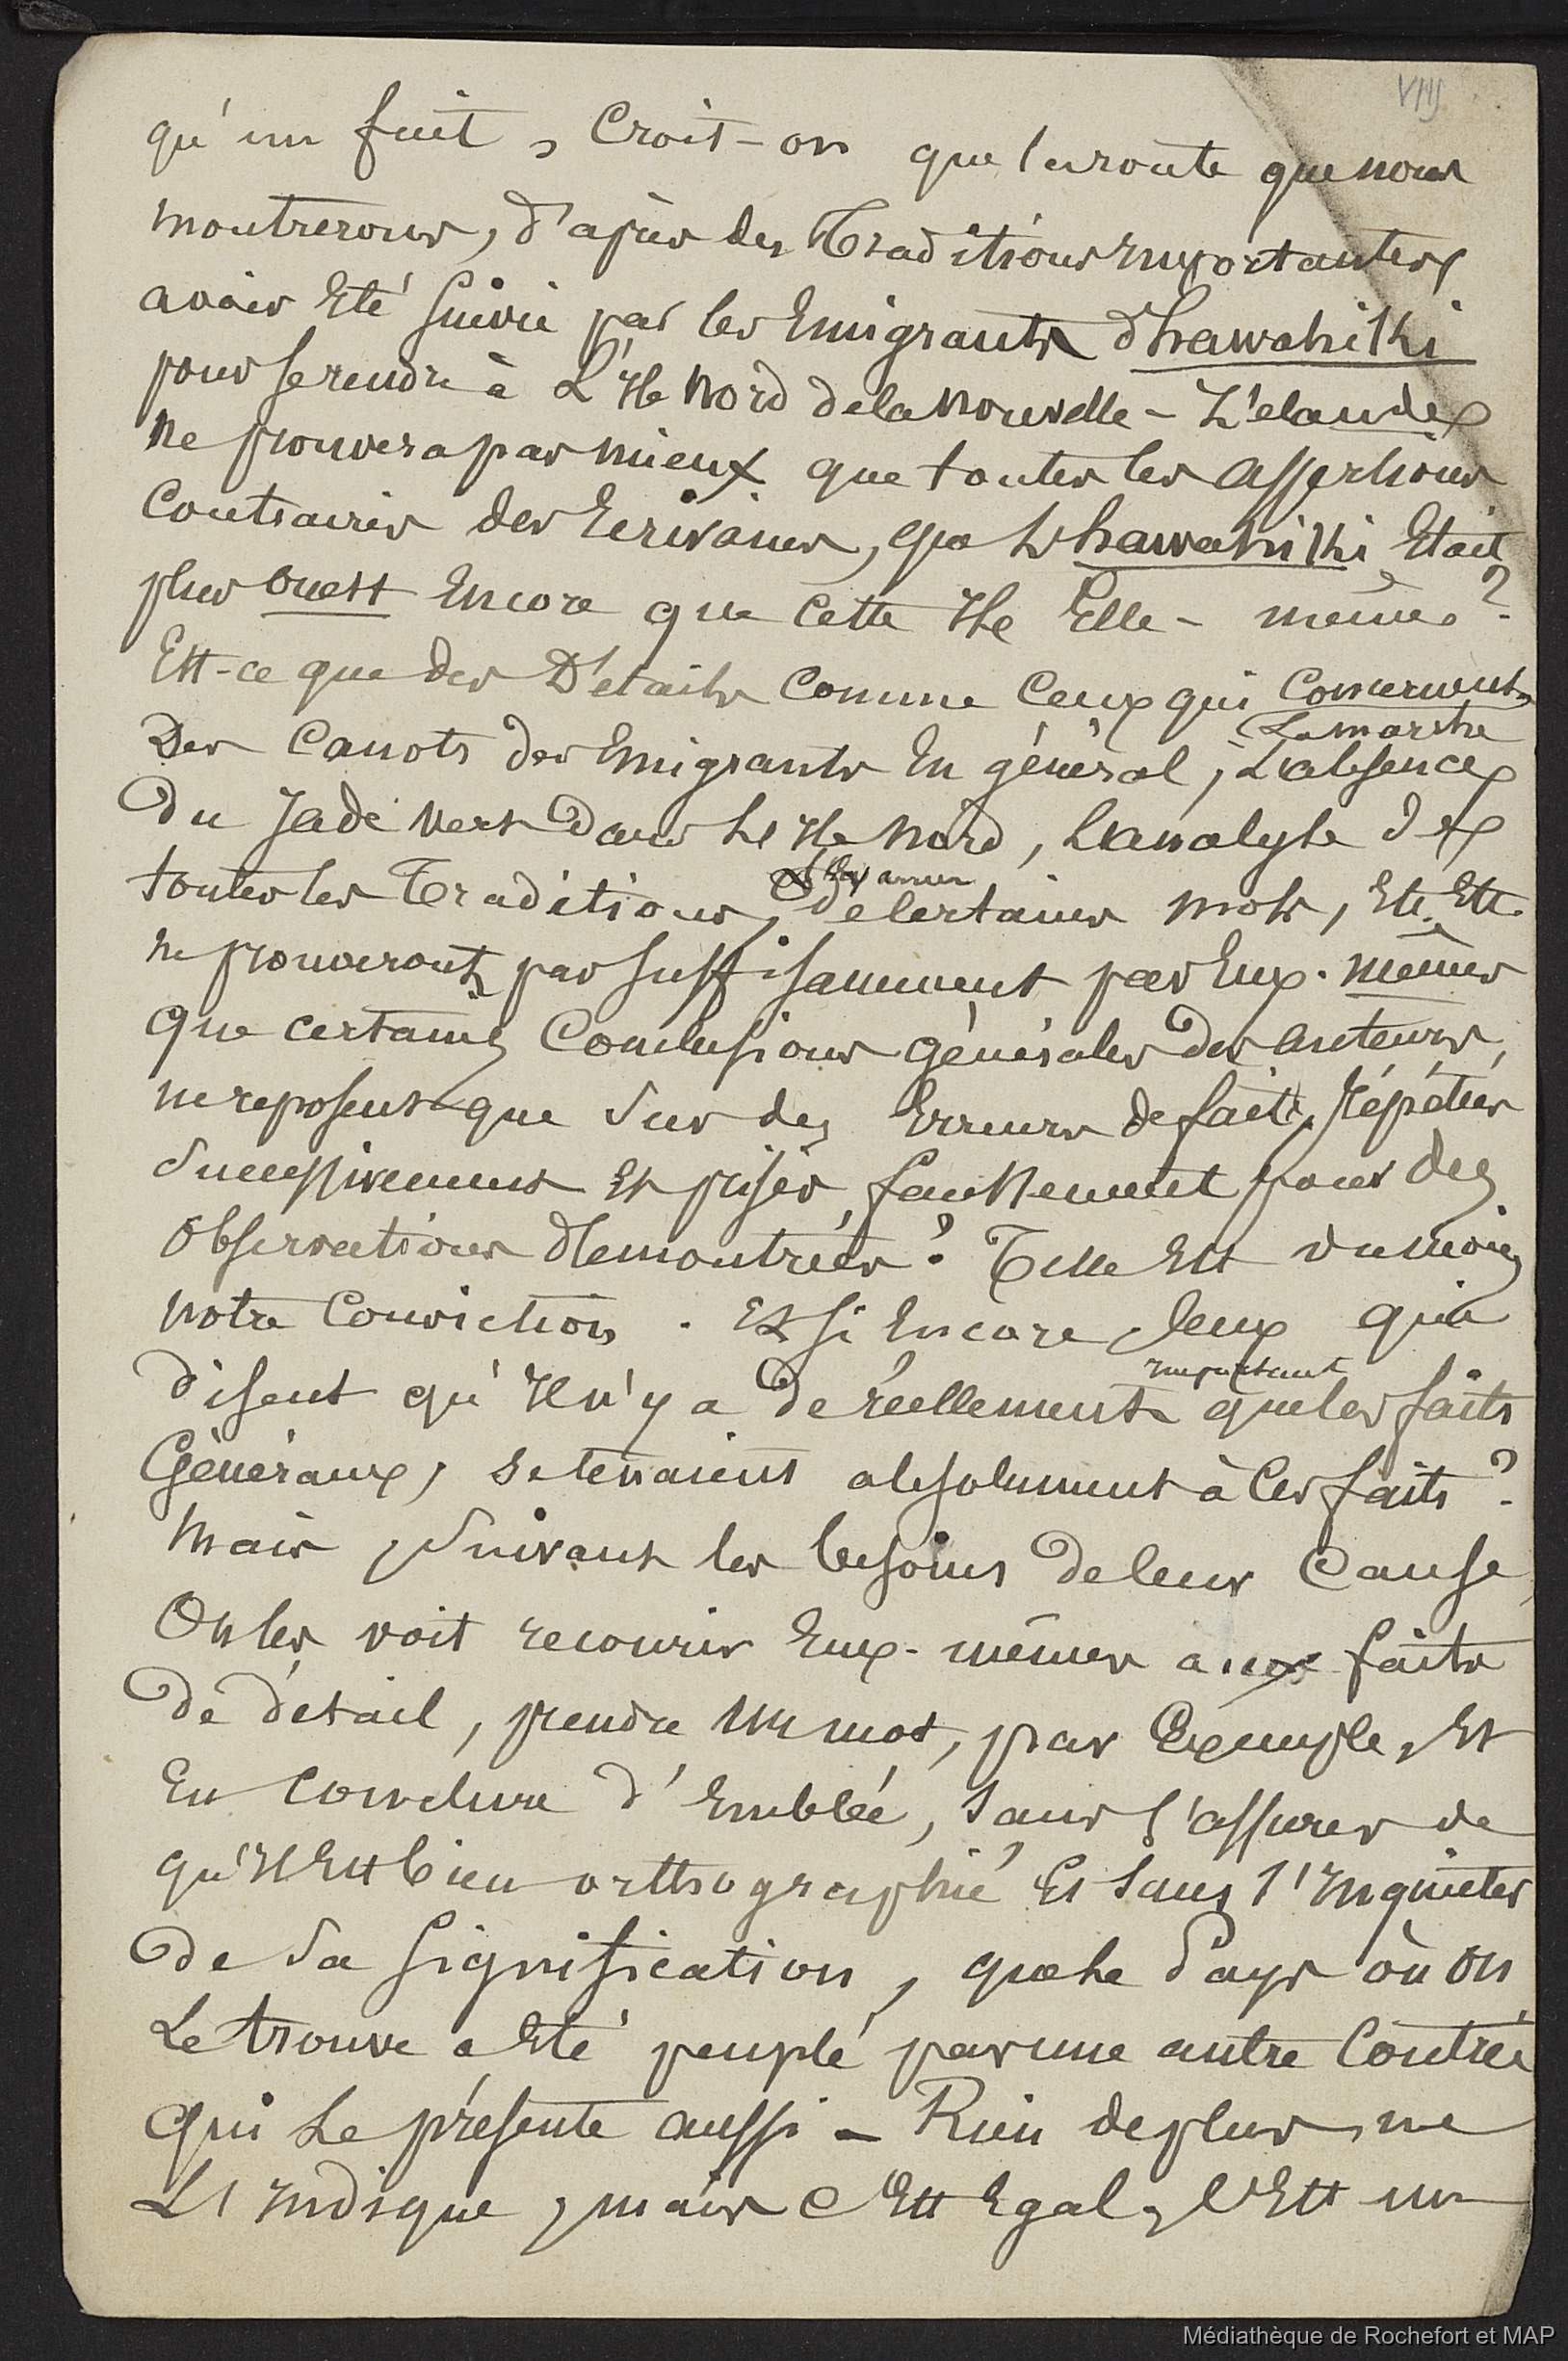 VIII
qu'un fait, Croit-on que la route que nous
montrerons, d'après des Traditions importantes
avoir Eté suivie par les Emigrants d'hawahiki
pour se rendre à L'Ile Nord de la Nouvelle-Zélande
ne prouvera pas mieux que toutes les assertions
Contraires des Ecrivains, que L'hawahiki Etait
plus ouest Encore que cette Ile Elle-même?
Est-ce que des Détails Comme Ceux qui Concernent
La marche
Des Canots des Emigrants En général, L'absence
Du Jade vert Dans L'Ile Nord, L'analyse de
toutes les Traditions, de certains mots, Etc. Etc.
ne prouveront pas suffisamment par Eux-mêmes
que certaines Conclusions générales des auteurs,
ne reposent que sur des Erreurs de faits, répétées
Successivement Et prises faussement pour des
Observations démontrées? Telle Est du moins
notre Conviction. Et si Encore Ceux qui
important
disent qu'Il n'y a de réellement que les faits
Généraux, se tenaient absolument à Ces faits?
Mais, Suivant les besoins de leur Cause,
On les voit recourir Eux-mêmes aux faits
de détail, prendre un mot, par Exemple, Et
En conclure d'Emblée, sans s'assurer de
qu'Il Est bien orthographié Et sans s'Inquieter
de sa signification, que le Pays où on
Le trouve a Eté peuplé par une autre Contrée
qui Le présente aussi - Rien de plus ne
L'Indique, mais C'Est Egal, C'Est un
Médiathèque de Rochefort et MAP